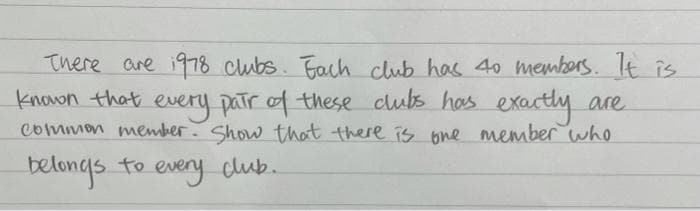 There are 1978 clubs. Each club has 40 members. It is
known that every pair of these clubs has exactly are
common member. Show that there is one member who
belongs to every club.